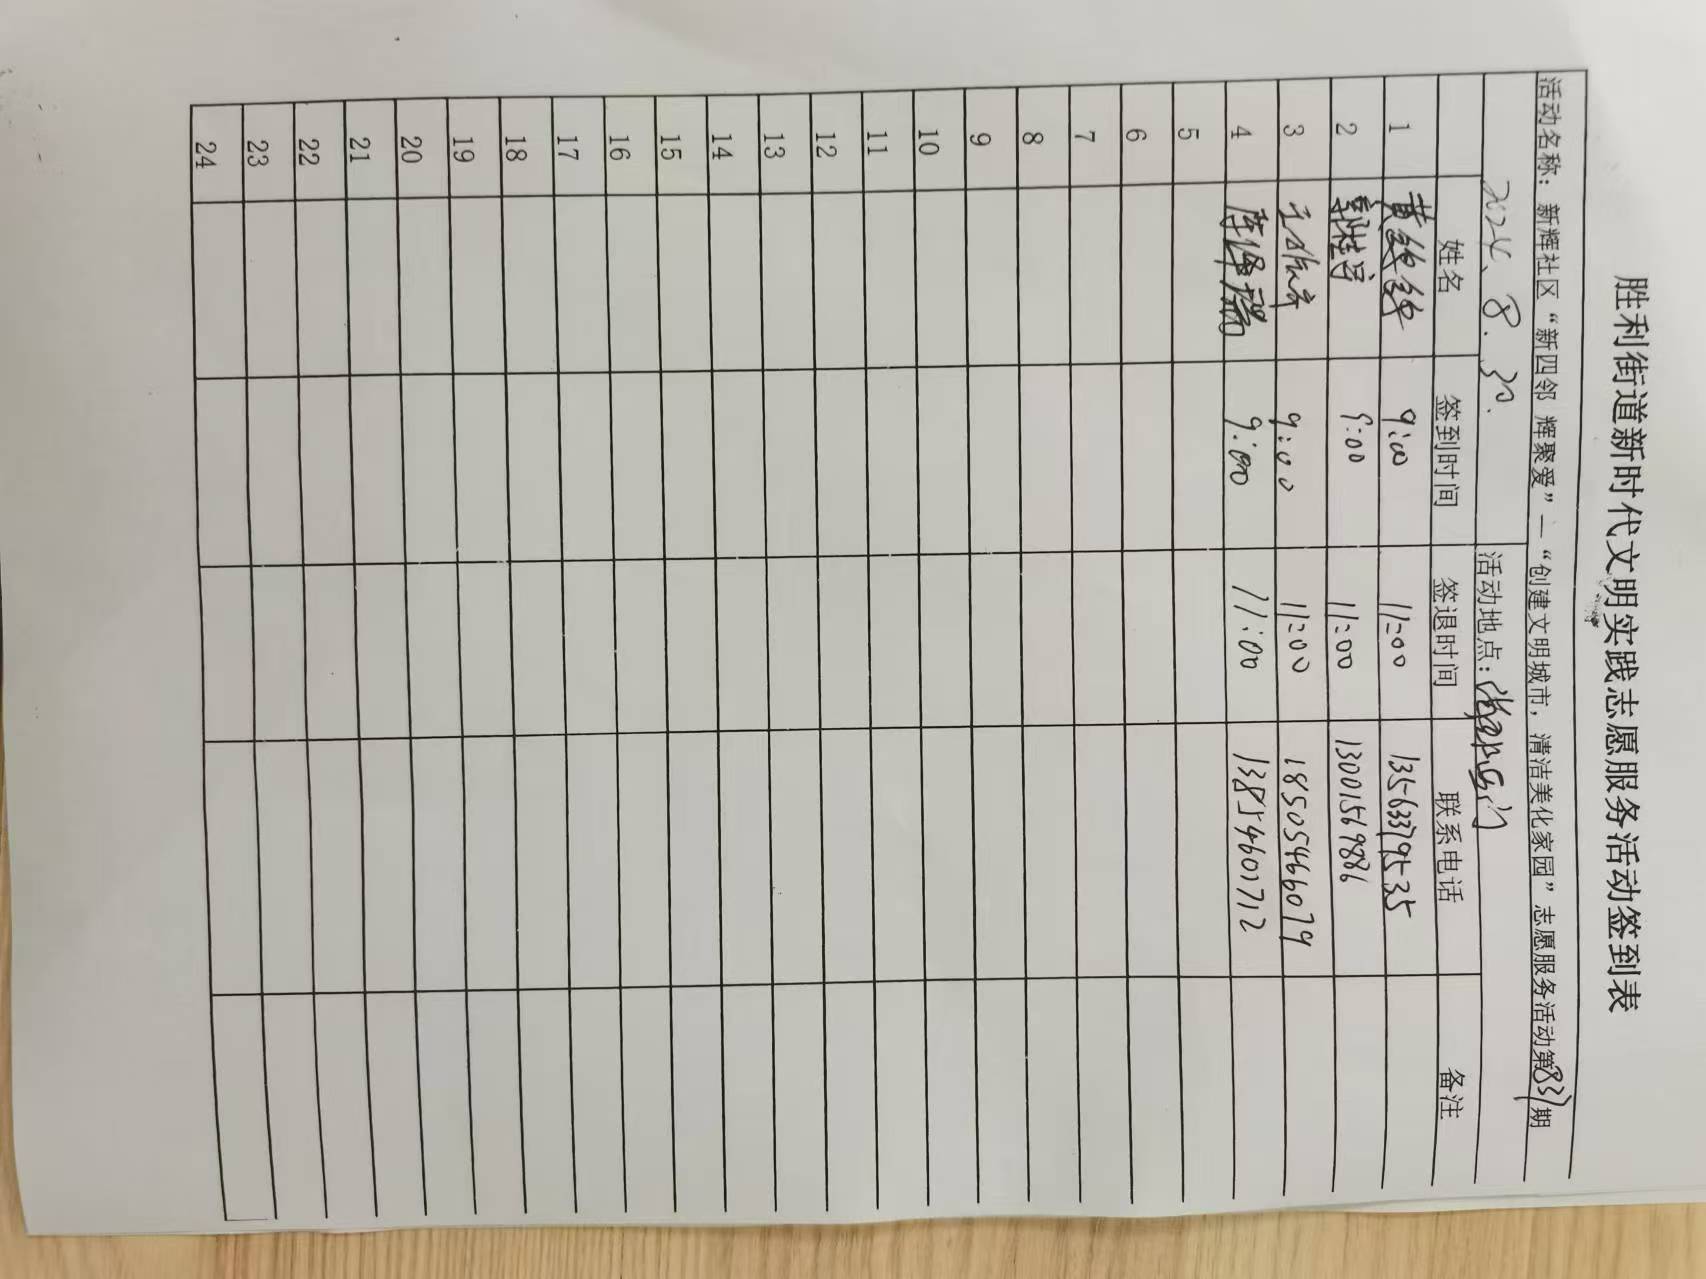 胜利街道新时代文明实践志愿服务活动签到表
活动名称：新辉社区“新四邻 辉聚爱”—“创建文明城市，清洁美化家园”志愿服务活动第837期
2024、8.30. 活动地点：
姓名 签到时间 签退时间 联系电话 备注
1 黄 9:00 11:00 13563379535
2 郭 9:00 11:00 13001569886
3 9:00 11:00 18505466079
4 9:00 11:00 13854601712
5
6
7
8
9
10
11
12
13
14
15
16
17
18
19
20
21
22
23
24